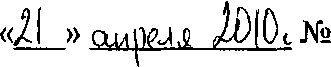 «21» апреля 2010г №